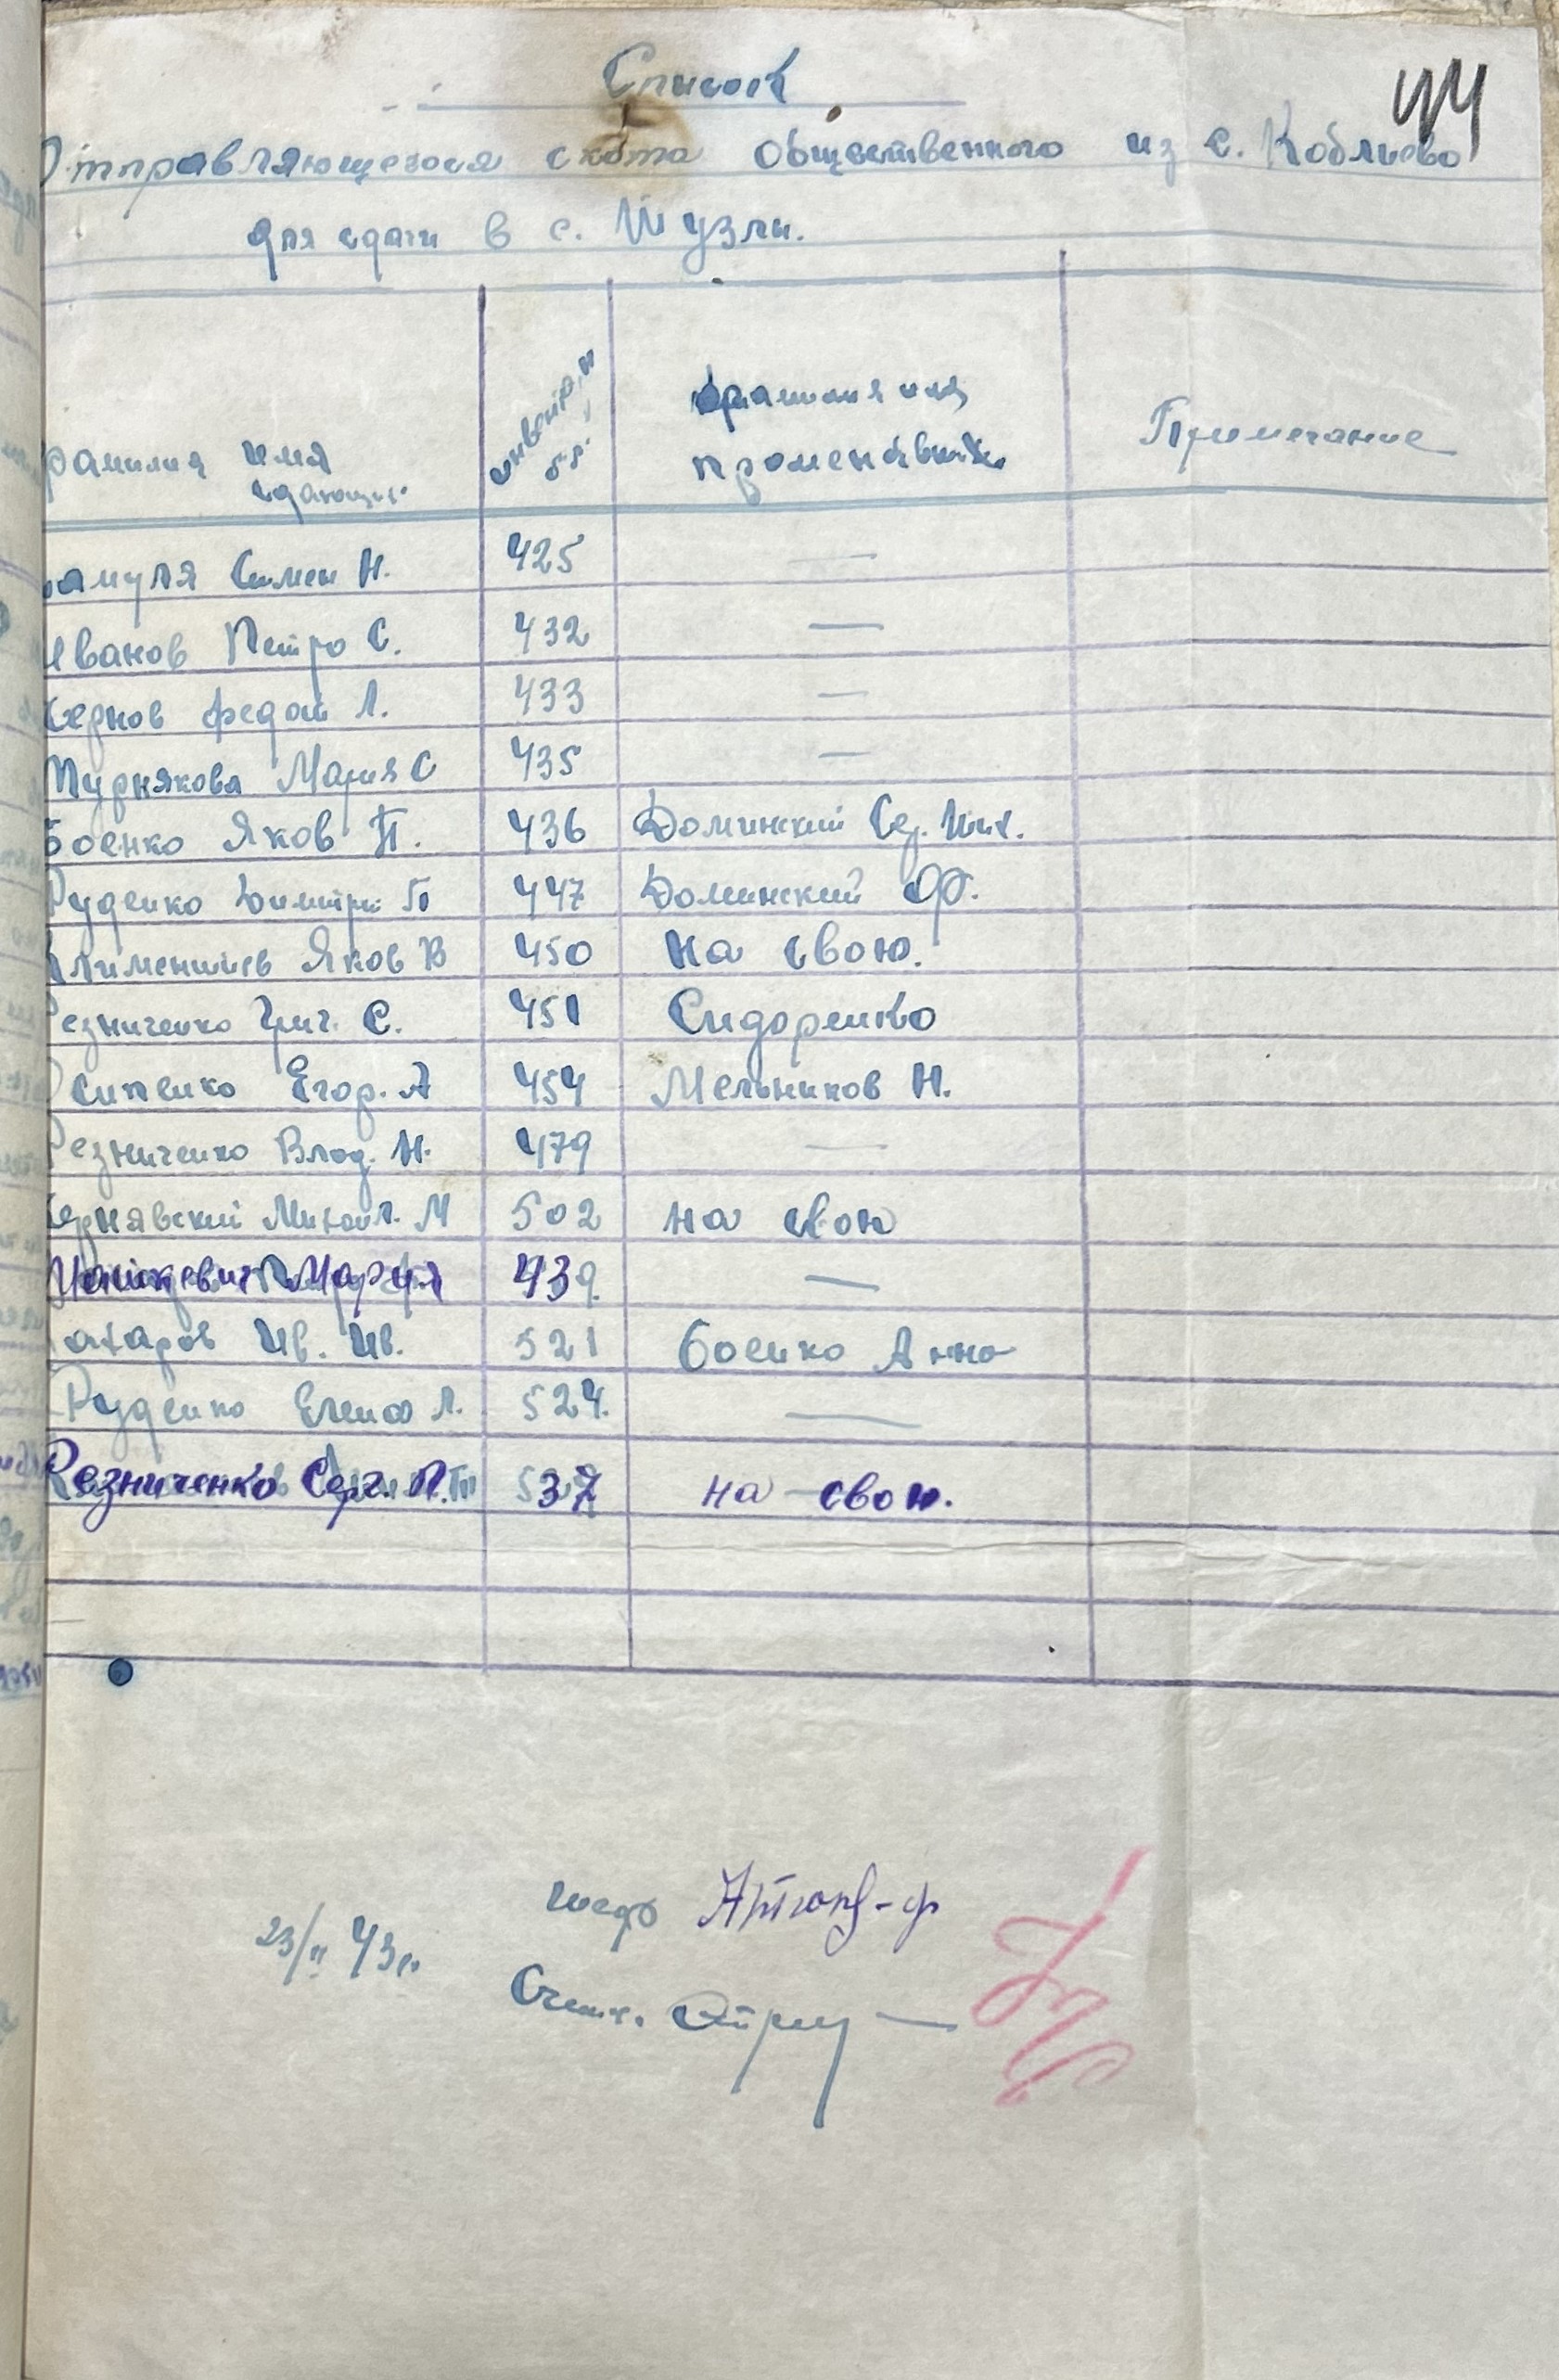 44
Список
Отправляющегося скота общественного из с. Коблиево
для сдачи в с. Тузли.
фамилия имя сдающих
инвентр. н
фамилия имя променявших
Примечание
амуля Симен Н. 425 —
Иванов Петро С. 432 —
Чернов Федой Л. 433 —
Пурнякова Мария С 435 —
Боенко Яков П. 436 Доминский Сер. Ник.
Руденко Димитри П 447 Доминский Ф.
Климентьев Яков В 450 на свою.
Резниченко Григ. С. 451 Сидоренко
Осипенко Егор. А 454 Мельников Н.
Резниченко Влад. Н. 479 —
Чернявский Михаил. М 502 на свою
Мария 439. —
ахаров Ив. Ив. 521 боенко Анна
Руденко Елена Л. 524. —
Резниченко Серг. П. 537 на свою.
23/II 43г.
Счетн.